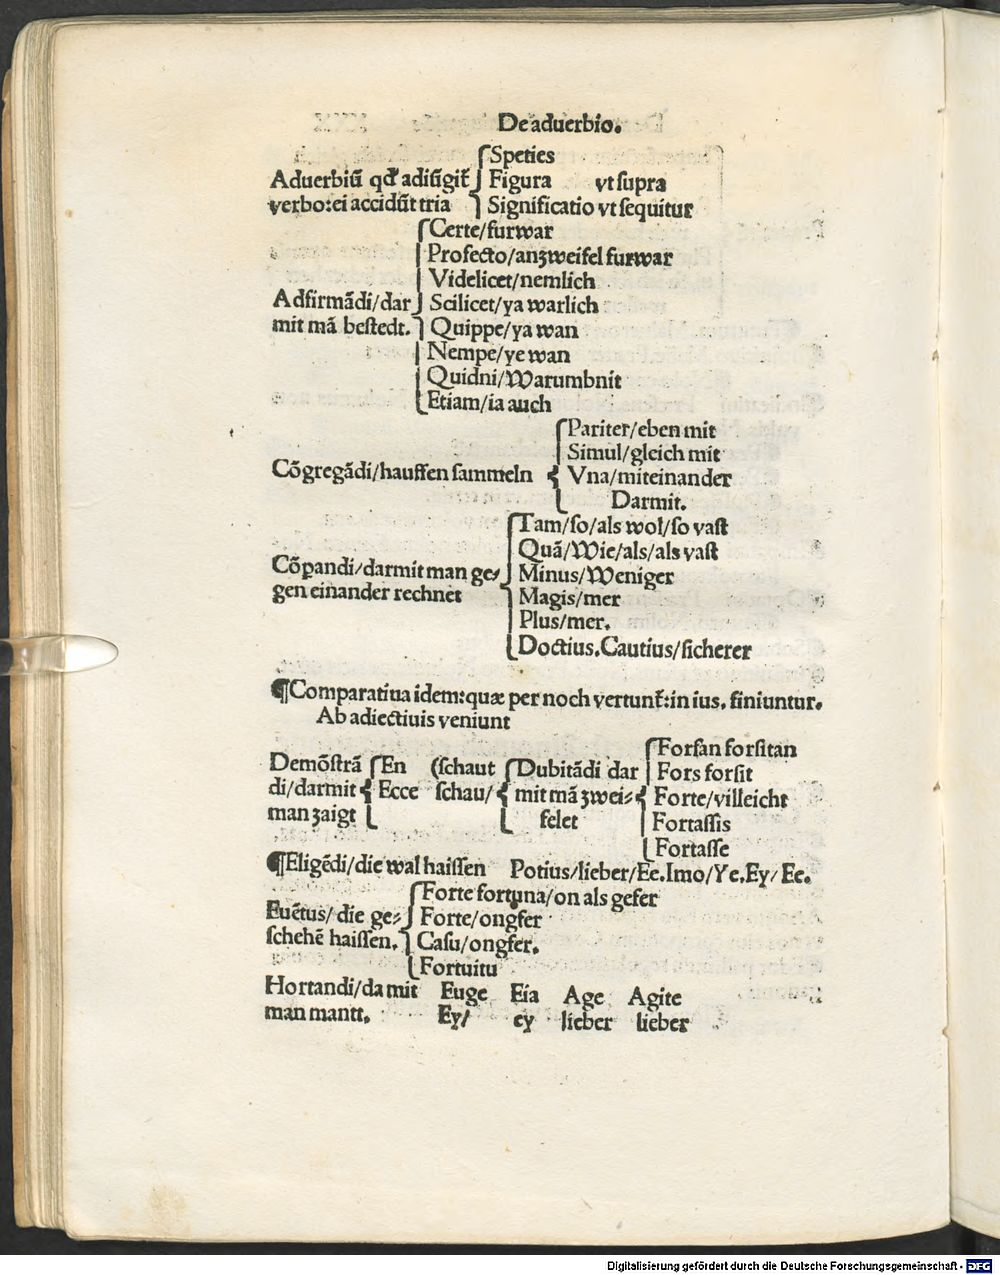 De aduerbio.
Speties
Aduerbiū qđ adiūgit̄ Figura vt supra
verbo: ei accidūt tria Significatio vt sequitur
Certe/furwar
Profecto/anzweifel furwar
Videlicet/nemlich
Adfirmādi/dar Scilicet/ya warlich
mit mā bestedt. Quippe/ya wan
Nempe/ye wan
Quidni/Warumbnit
Etiam/ia auch
Pariter/eben mit
Simul/gleich mit
Cōgregādi/hauffen sammeln Vna/miteinander
Darmit.
Tam/so/als wol/so vast
Quā/Wie/als/als vast
Cōpandi/darmit man ge⸗ Minus/Weniger
gen einander rechnet Magis/mer
Plus/mer.
Doctius. Cautius/sicherer
¶Comparatiua idem: quæ per noch vertunt̄: in ius. finiuntur.
Ab adiectiuis veniunt
Forsan forsitan
Demōstrā En (schaut Dubitādi dar Fors forsit
di/darmit Ecce schau/ mit mā zwei⸗ Forte/villeicht
man zaigt felet Fortassis
Fortasse
¶Eligēdi/die wal haissen Potius/lieber/Ee. Imo/Ye. Ey/Ee.
Forte fortuna/on als gefer
Euētus/die ge⸗ Forte/ongfer
schehē haissen. Casu/ongfer.
Fortuitu
Hortandi/da mit Euge Eia Age Agite
man mantt. Ey/ ey lieber lieber
Digitalisierung gefördert durch die Deutsche Forschungsgemeinschaft - DFG